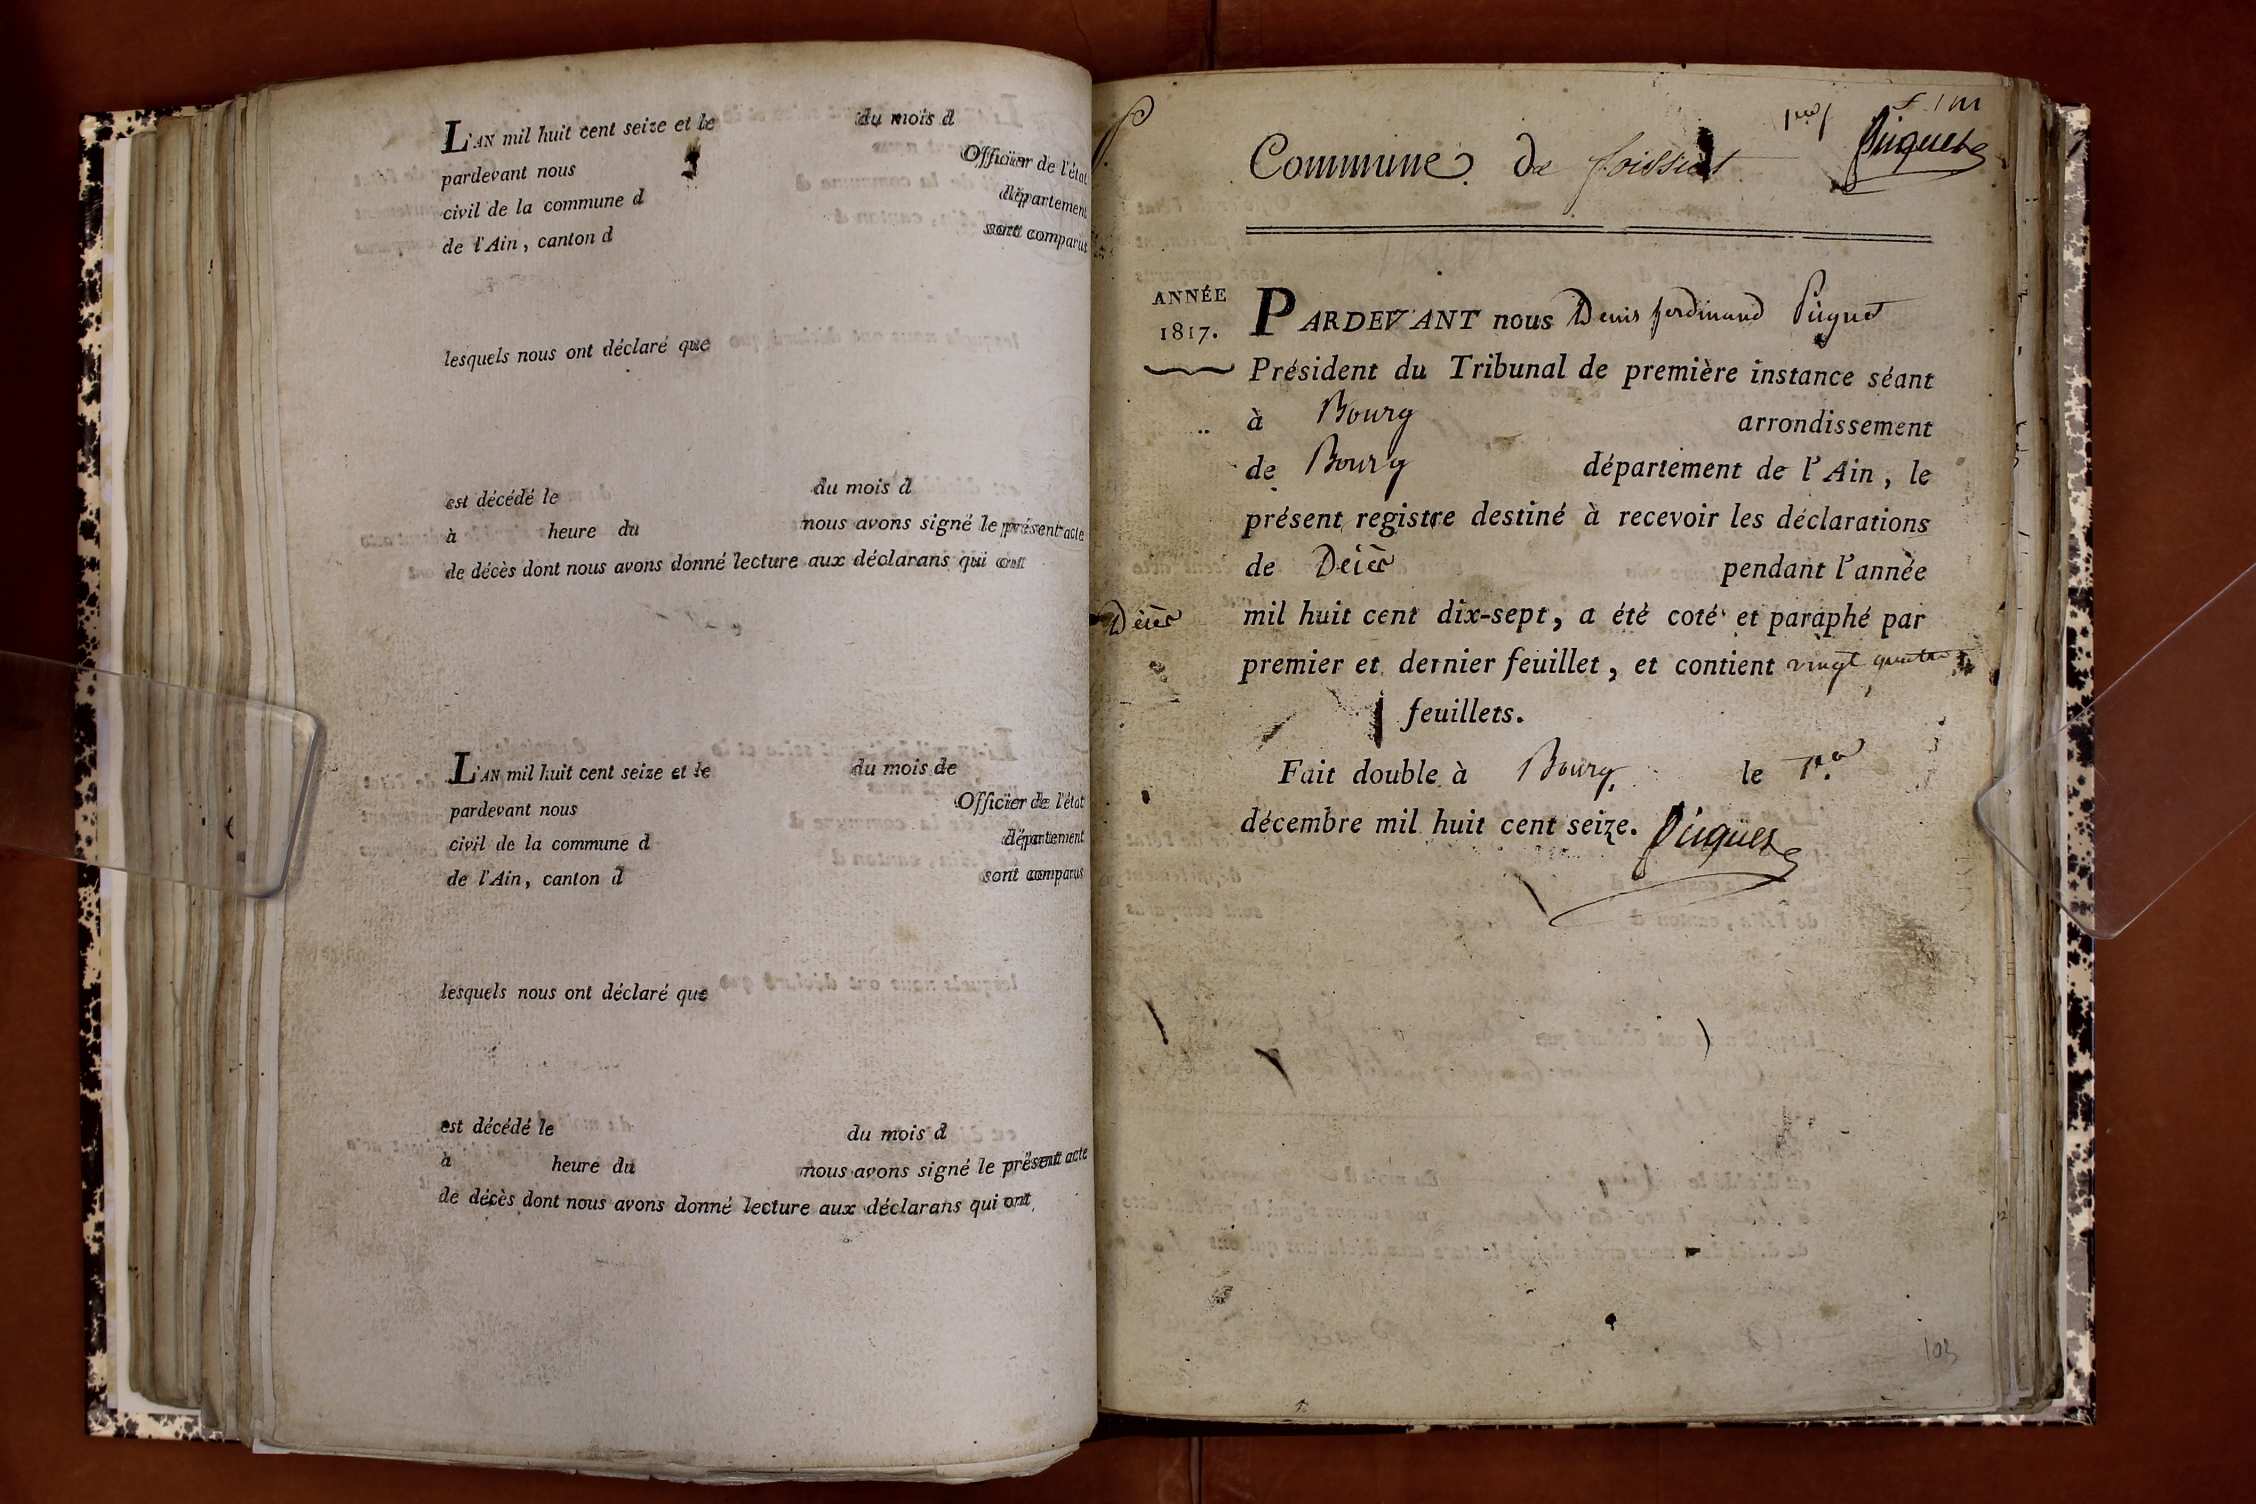 L'AN mil huit cent seize et le du mois d
pardevant nous Officier de l'état
civil de la commune d département
de l'Ain, canton d sont comparus
lesquels nous ont déclaré que
est décédé le du mois d
à heure du nous avons signé le présent acte
de décès dont nous avons donné lecture aux déclarans qui ont
L'AN mil huit cent seize et le du mois de
pardevant nous Officier de l'état
civil de la commune d département
de l'Ain, canton d sont comparus
lesquels nous ont déclaré que
est décédé le du mois d
à heure du nous avons signé le présent acte
de décès dont nous avons donné lecture aux déclarans qui ont
Piquet
Commune de foissiat
ANNÉE
1817.
PARDEVANT nous Denis ferdinand Piquet
Président du Tribunal de première instance séant
à Bourg arrondissement
de Bourg département de l'Ain, le
présent registre destiné à recevoir les déclarations
de Décès pendant l'année
Décès
mil huit cent dix-sept, a été coté et paraphé par
premier et dernier feuillet, et contient vingt quatre
feuillets.
Fait double à Bourg le 1er
décembre mil huit cent seize. Piquet
103